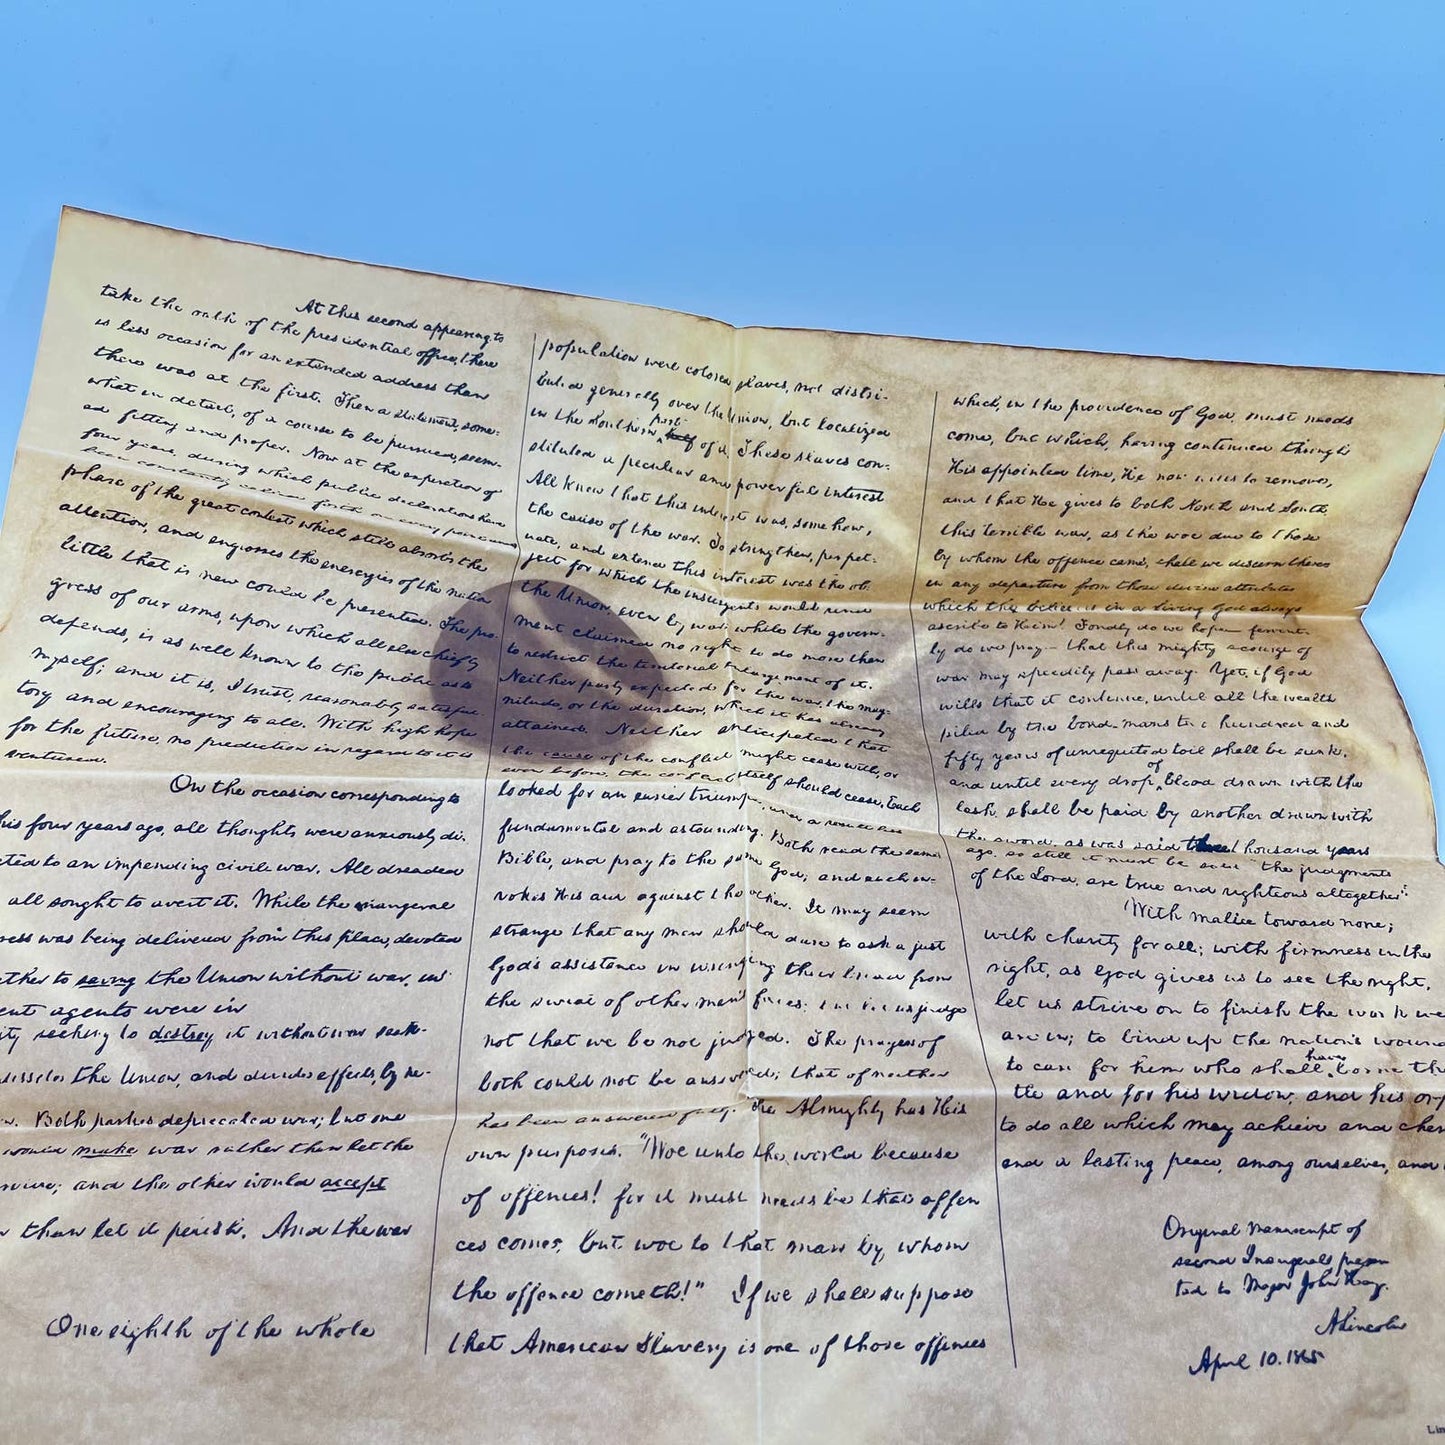 At this second appearing to
take the oath of the presidential office, there
is less occasion for an extended address than
there was at the first. Then a statement, some-
what in detail, of a course to be pursued, seem-
ed fitting and proper. Now at the expiration of
four years, during which public declarations have
been constantly called forth on every point and
phase of the great contest which still absorbs the
attention, and engrosses the energies of the nation
little that is new could be presented. The pro-
gress of our arms, upon which all else chiefly
depends, is as well known to the public as to
myself; and it is, I trust, reasonably satisfac-
tory and encouraging to all. With high hope
for the future, no prediction in regard to it is
ventured.
On the occasion corresponding to
his four years ago, all thoughts were anxiously di-
cted to an impending civil war. All dreaded
all sought to avert it. While the inaugeral
ress was being delivered from this place, devoted
ether to saving the Union without war, in
ent agents were in
ity seeking to destroy it without war seek-
dissolve the Union, and divide effects, by ne-
n. Both parties deprecated war; but one
would make war rather than let the
rvive; and the other would accept
r than let it perish. And the war
One eighth of the whole
population were colored slaves, not distri-
buted generally over the Union, but localized
in the Southern part of it. These slaves con-
stituted a peculiar and powerful interest
All knew that this interest was, somehow,
the cause of the war. To strengthen, perpet-
uate, and extend this interest was the ob-
ject for which the insurgents would rend
the Union, even by war; while the govern-
ment claimed no right to do more than
to restrict the territorial enlargement of it.
Neither party expected for the war, the mag-
nitude, or the duration, which it has already
attained. Neither anticipated that
the cause of the conflict might cease with, or
even before, the conflict itself should cease. Each
looked for an easier triumph, and a result less
fundamental and astounding. Both read the same
Bible, and pray to the same God; and each in-
vokes His aid against the other. It may seem
strange that any men should dare to ask a just
God's assistance in wringing their bread from
the sweat of other men's faces; but let us judge
not that we be not judged. The prayers of
both could not be answered; that of neither
has been answered fully. The Almighty has His
own purposes. "Woe unto the world because
of offences! for it must needs be that offen
ces come; but woe to that man by whom
the offence cometh!" If we shall suppose
that American Slavery is one of those offences
which, in the providence of God, must needs
come, but which, having continued through
His appointed time, He now wills to remove,
and that He gives to both North and South,
this terrible war, as the woe due to those
by whom the offence came, shall we discern therein
any departure from those divine attributes
which the believers in a living God always
ascribe to Him? Fondly do we hope- fervent-
ly do we pray- that this mighty scourge of
war may speedily pass away. Yet, if God
wills that it continue, until all the wealth
piled by the bond-man's two hundred and
fifty years of unrequited toil shall be sunk,
and until every drop of blood drawn with the
lash, shall be paid by another drawn with
the sword, as was said three thousand years
ago, so still it must be said "the judgments
of the Lord, are true and righteous altogether".
With malice toward none;
with charity for all; with firmness in the
right, as God gives us to see the right,
let us strive on to finish the work we
are in; to bind up the nation's wound
to care for him who shall have borne the
tle and for his widow, and his orp
to do all which may achieve and cher
and a lasting peace, among ourselves, and
Original manuscript of
second Inaugeral presen
ted to Major John Hay.
A Lincoln
April 10. 1865
Lin